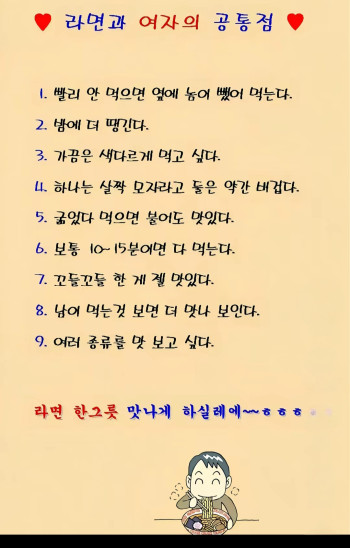 ♥ 라면과 여자의 공통점 ♥
1. 빨리 안 먹으면 옆에 놈이 뺐어 먹는다.
2. 밤에 더 땡긴다.
3. 가끔은 색다르게 먹고 싶다.
4. 하나는 살짝 모자라고 둘은 약간 버겁다.
5. 굶었다 먹으면 불어도 맛있다.
6. 보통 10~15분이면 다 먹는다.
7. 꼬들꼬들 한 게 젤 맛있다.
8. 남이 먹는것 보면 더 맛나 보인다.
9. 여러 종류를 맛 보고 싶다.
라면 한그릇 맛나게 하실레에~~ㅎㅎㅎ